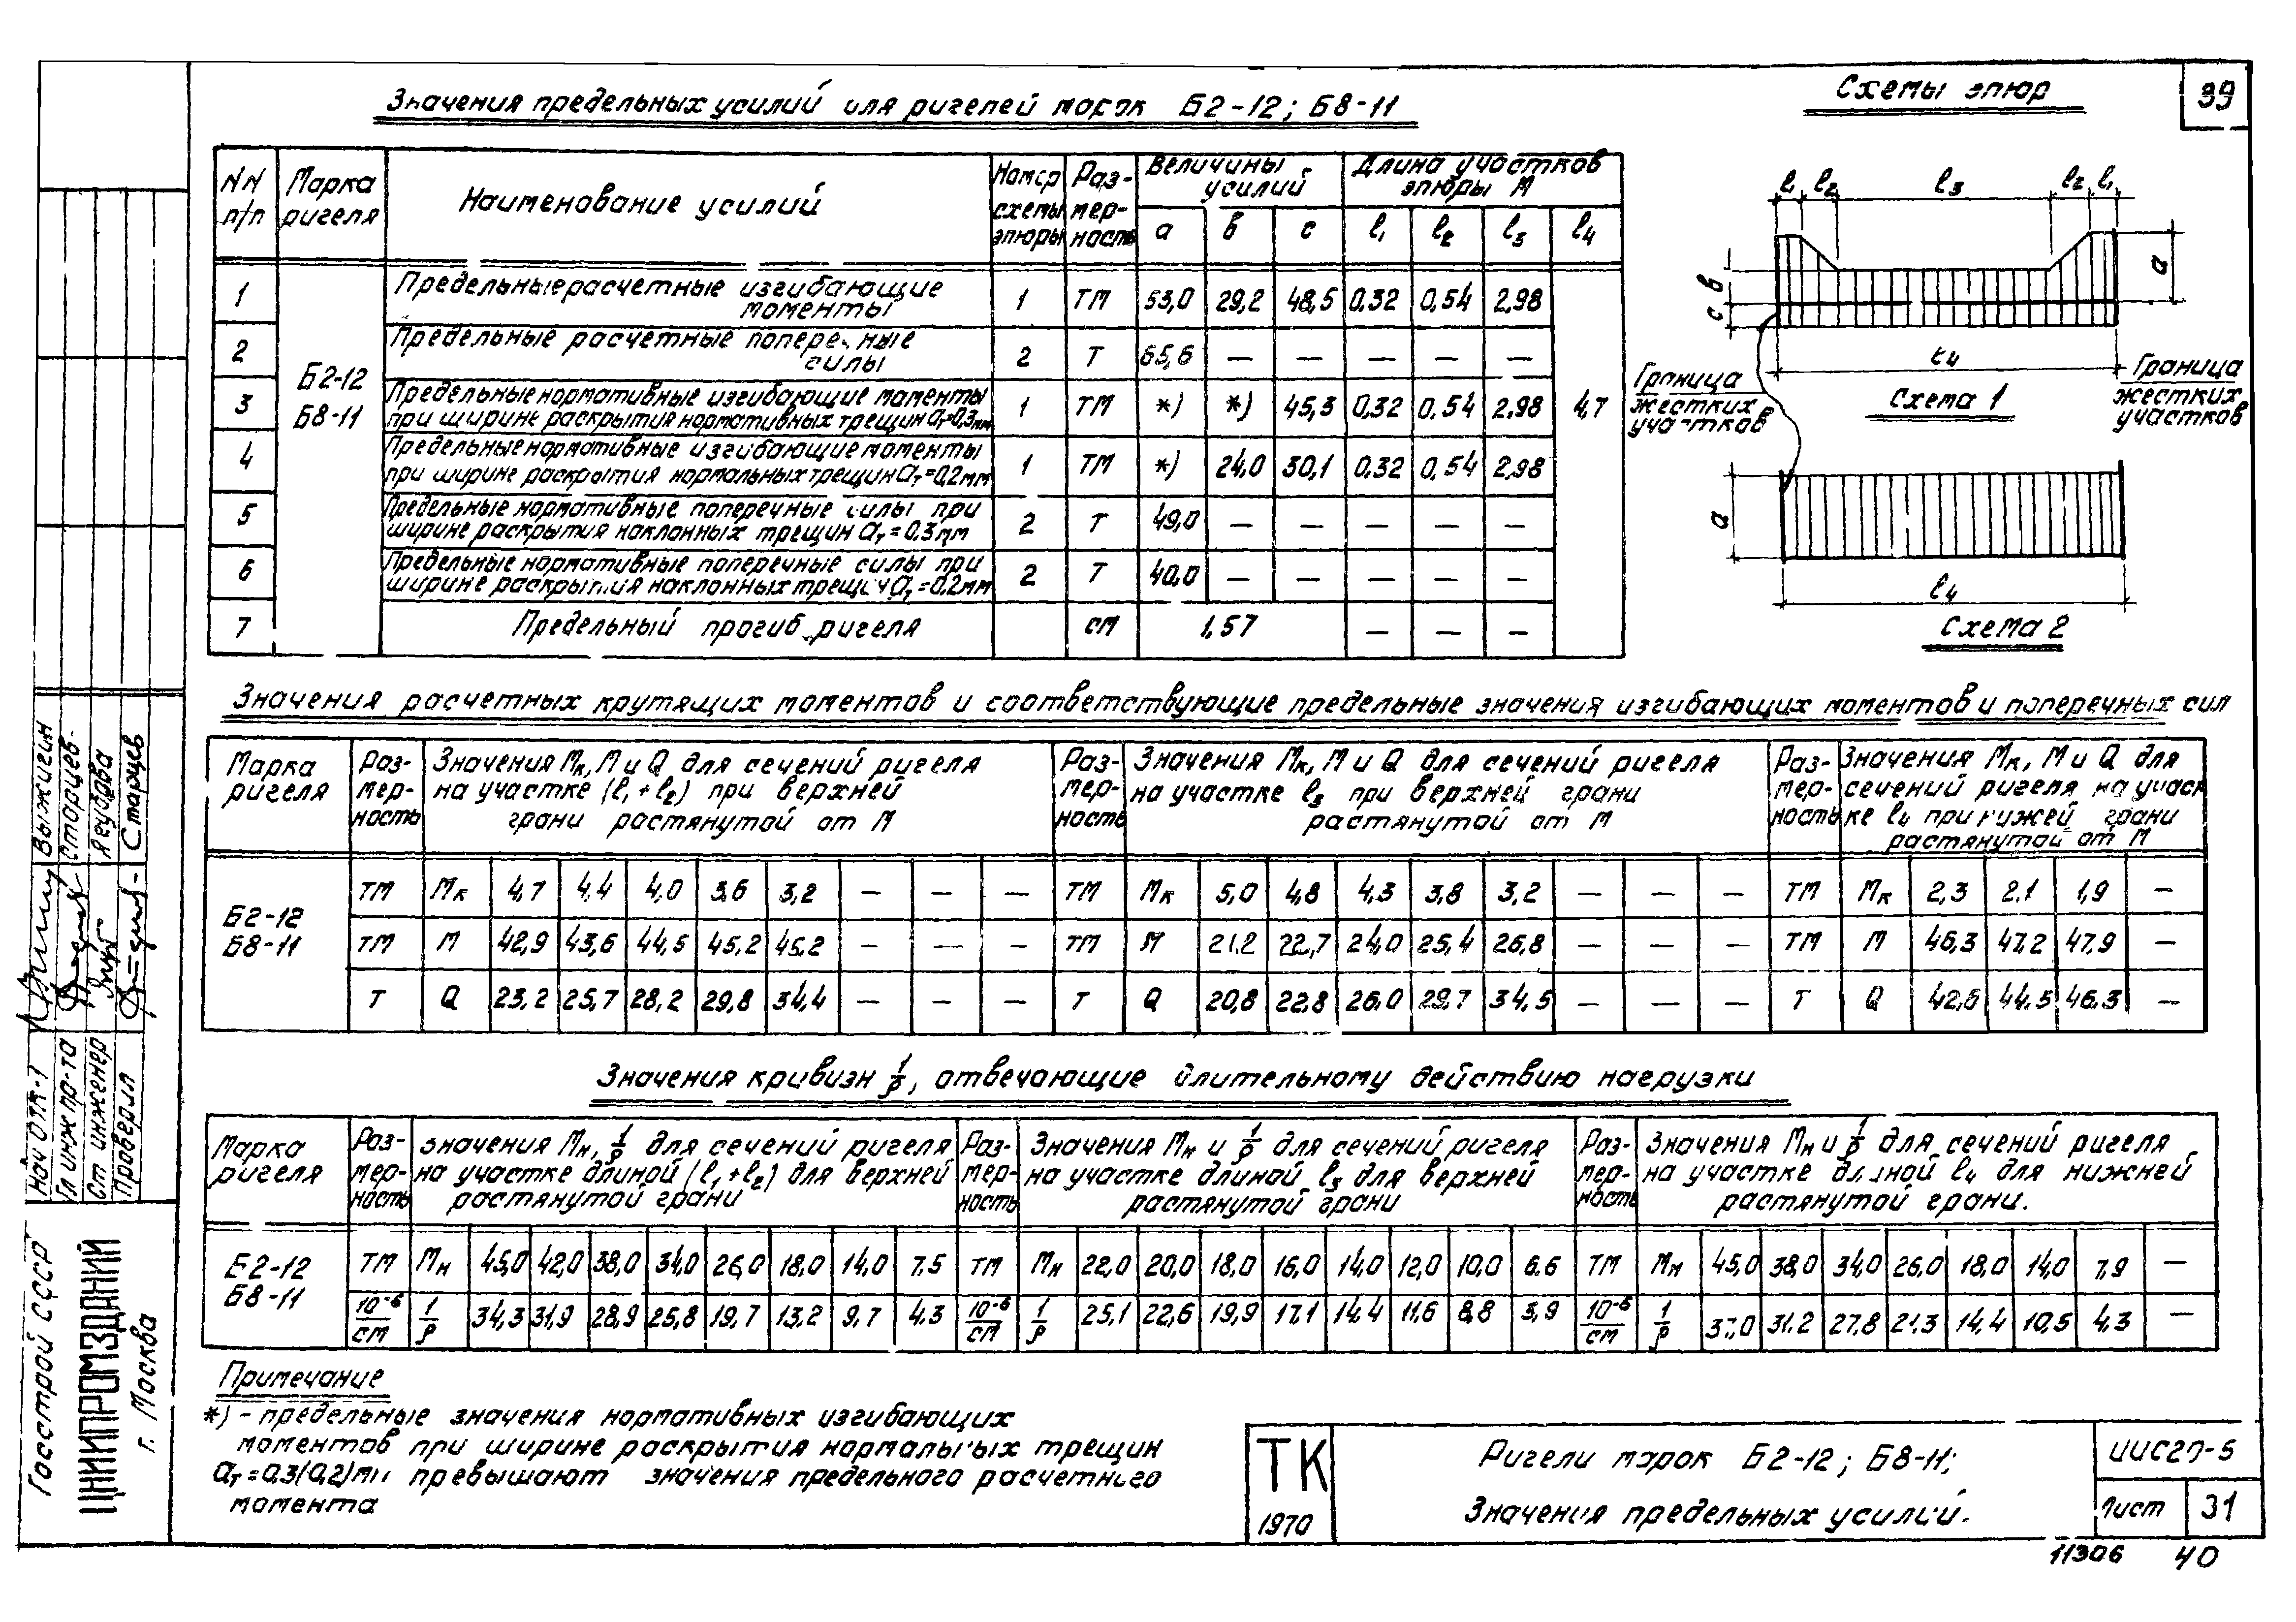 Значения предельных усилий для ригелей марок Б2-12; Б8-11
Схемы эпюр
39
NN п/п | Марка ригеля | Наименование усилий | Номер схемы эпюры | Размерность | Величины усилий | Длина участков эпюры М
а | в | с | ℓ1 | ℓ2 | ℓ3 | ℓ4
Б2-12
Б8-11
1 | Предельные расчетные изгибающие моменты | 1 | ТМ | 53,0 | 29,2 | 48,5 | 0,32 | 0,54 | 2,98
2 | Предельные расчетные поперечные силы | 2 | Т | 65,6 | — | — | — | — | —
3 | Предельные нормативные изгибающие моменты при ширине раскрытия нормативных трещин aт=0,3мм | 1 | ТМ | *) | *) | 45,3 | 0,32 | 0,54 | 2,98
4,7
4 | Предельные нормативные изгибающие моменты при ширине раскрытия нормальных трещин aт=0,2мм | 1 | ТМ | *) | 24,0 | 30,1 | 0,32 | 0,54 | 2,98
5 | Предельные нормативные поперечные силы при ширине раскрытия наклонных трещин aт=0,3мм | 2 | Т | 49,0 | — | — | — | — | —
6 | Предельные нормативные поперечные силы при ширине раскрытия наклонных трещин aт=0,2мм | 2 | Т | 40,0 | — | — | — | — | —
7 | Предельный прогиб ригеля | см | 1,57 | — | — | —
ℓ1 ℓ2 ℓ3 ℓ2 ℓ1
а
в
с
ℓ4
Граница жестких участков
Схема 1
Граница жестких участков
а
ℓ4
Схема 2
Значения расчетных крутящих моментов и соответствующие предельные значения изгибающих моментов и поперечных сил
Марка ригеля | Размерность | Значения Мк, М и Q для сечений ригеля на участке (ℓ1+ℓ2) при верхней грани растянутой от М | Размерность | Значения Мк, М и Q для сечений ригеля на участке ℓ3 при верхней грани растянутой от М | Размерность | Значения Мк, М и Q для сечений ригеля на участке ℓ4 при нижней грани растянутой от М
Б2-12
Б8-11
ТМ | Мк | 4,7 | 4,4 | 4,0 | 3,6 | 3,2 | — | — | — | ТМ | Мк | 5,0 | 4,8 | 4,3 | 3,8 | 3,2 | — | — | — | ТМ | Мк | 2,3 | 2,1 | 1,9 | —
ТМ | М | 42,9 | 43,6 | 44,5 | 45,2 | 45,2 | — | — | — | ТМ | М | 21,2 | 22,7 | 24,0 | 25,4 | 26,8 | — | — | — | ТМ | М | 46,3 | 47,2 | 47,9 | —
Т | Q | 23,2 | 25,7 | 28,2 | 29,8 | 34,4 | — | — | — | Т | Q | 20,8 | 22,8 | 26,0 | 29,7 | 34,5 | — | — | — | Т | Q | 42,6 | 44,5 | 46,3 | —
Значения кривизн 1/ρ, отвечающие длительному действию нагрузки
Марка ригеля | Размерность | Значения Мн, 1/ρ для сечений ригеля на участке длиной (ℓ1+ℓ2) для верхней растянутой грани | Размерность | Значения Мн и 1/ρ для сечений ригеля на участке длиной ℓ3 для верхней растянутой грани | Размерность | Значения Мн и 1/ρ для сечений ригеля на участке длиной ℓ4 для нижней растянутой грани.
Б2-12
Б8-11
ТМ | Мн | 45,0 | 42,0 | 38,0 | 34,0 | 26,0 | 18,0 | 14,0 | 7,5 | ТМ | Мн | 22,0 | 20,0 | 18,0 | 16,0 | 14,0 | 12,0 | 10,0 | 6,6 | ТМ | Мн | 45,0 | 38,0 | 34,0 | 26,0 | 18,0 | 14,0 | 7,9 | —
10⁻⁶/см | 1/ρ | 34,3 | 31,9 | 28,9 | 25,8 | 19,7 | 13,2 | 9,7 | 4,3 | 10⁻⁶/см | 1/ρ | 25,1 | 22,6 | 19,9 | 17,1 | 14,4 | 11,6 | 8,8 | 3,9 | 10⁻⁶/см | 1/ρ | 31,2 | 27,8 | 21,3 | 14,4 | 10,5 | 4,3 | —
Примечание
*) - предельные значения нормативных изгибающих
моментов при ширине раскрытия нормальных трещин
aт=0,3(0,2)мм превышают значения предельного расчетного
момента
ТК
1970
Ригели марок Б2-12; Б8-11;
Значения предельных усилий.
ИИС20-5
Лист 31
11306 40
Нач ОТК-1 Выжигин
Гл инж пр-та Старцев
Ст. инженер
Проверил Старцев
Госстрой СССР
ЦНИИПРОМЗДАНИЙ
г. Москва